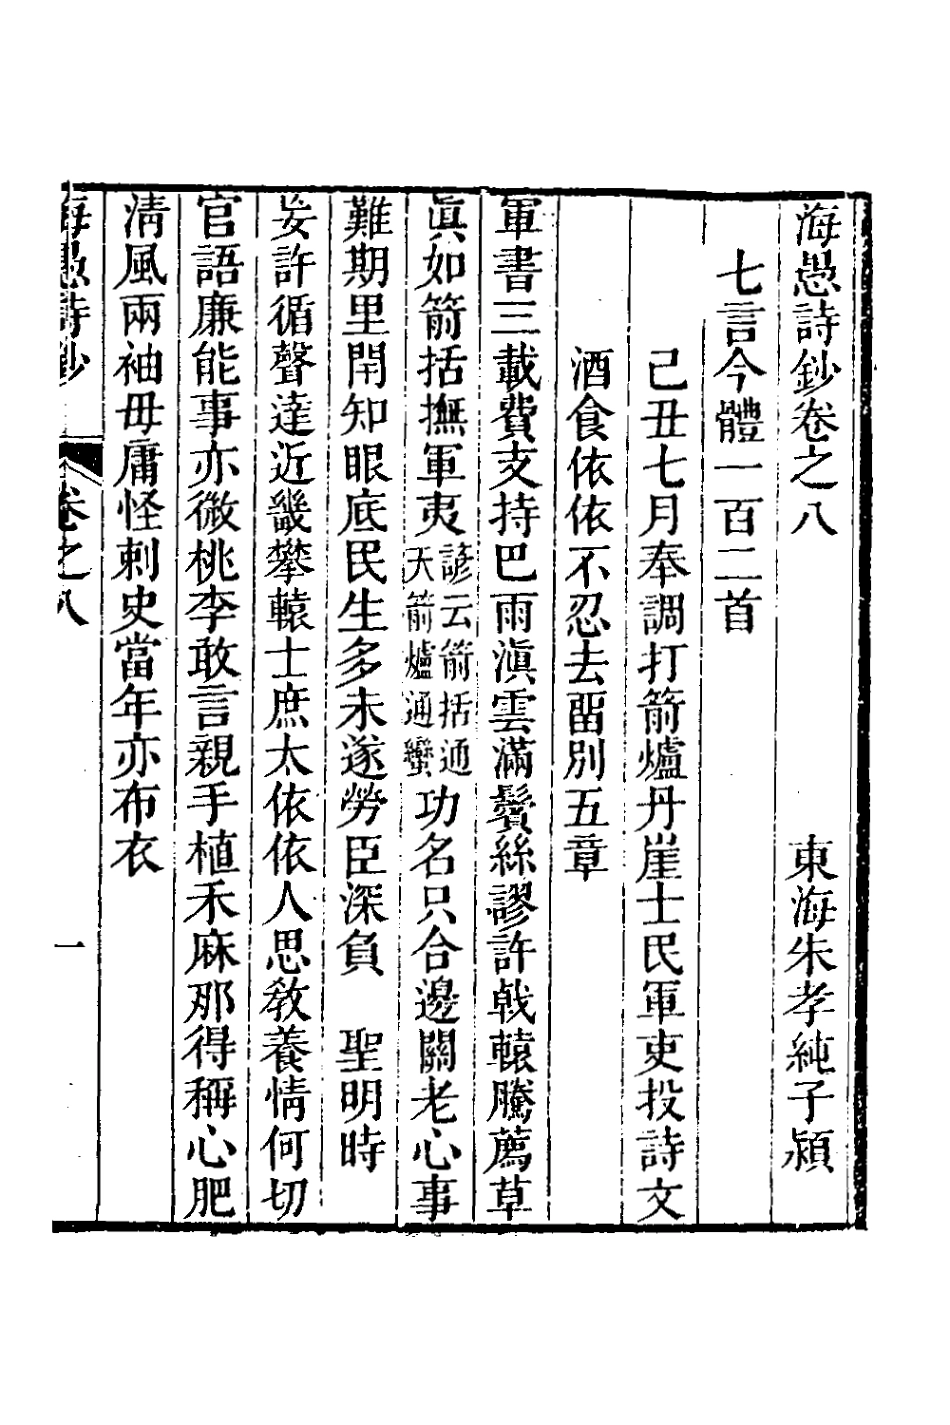 海愚詩鈔卷之八　東海朱孝純子潁
七言今體一百二首
己丑七月奉調打箭爐丹崖士民軍吏投詩文
酒食依依不忍去畱別五章
軍書三載費支持巴雨滇雲滿鬢絲謬許戟轅騰薦草
眞如箭括撫軍夷諺云箭括通天箭爐通蠻功名只合邊關老心事
難期里閈知眼底民生多未遂勞臣深負　聖明時
妄許循聲達近畿攀轅士庶太依依人思敎養情何切
官語廉能事亦微桃李敢言親手植禾麻那得稱心肥
淸風兩袖毋庸怪刺史當年亦布衣
海愚詩鈔　卷之八　一